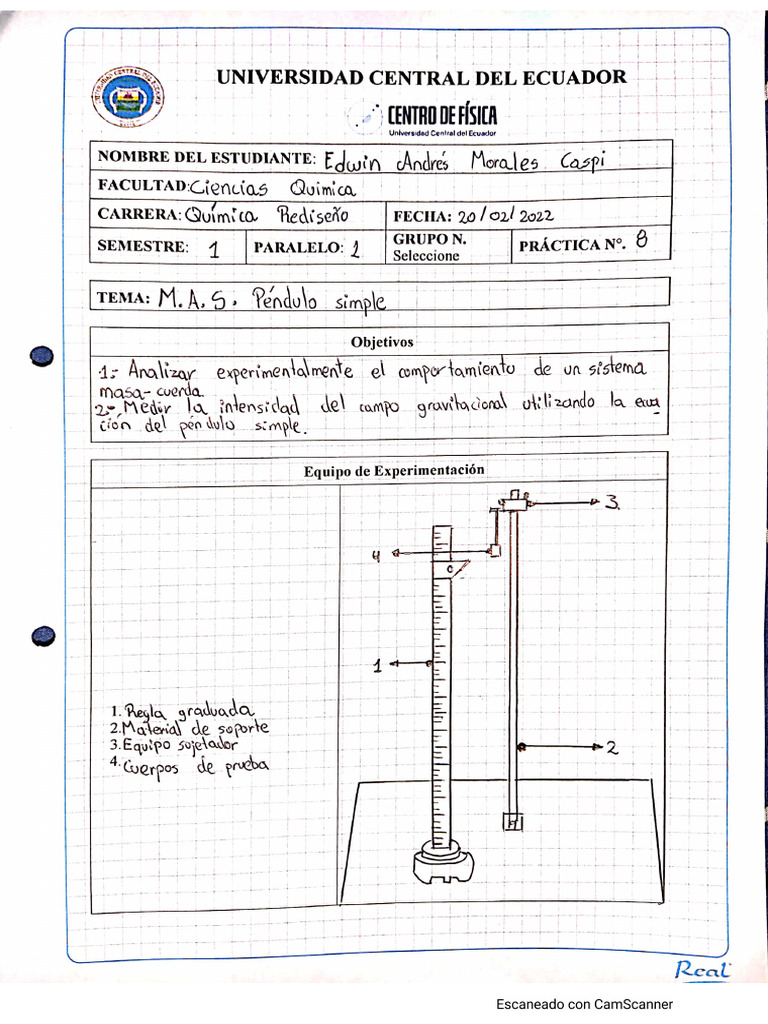 UNIVERSIDAD CENTRAL DEL ECUADOR
CENTRO DE FÍSICA
Universidad Central del Ecuador
NOMBRE DEL ESTUDIANTE: Edwin Andrés Morales Caspi
FACULTAD: Ciencias Quimica
CARRERA: Química Rediseño FECHA: 20/02/2022
SEMESTRE: 1 PARALELO: 1 GRUPO N. Seleccione PRÁCTICA Nº. 8
TEMA: M.A.S. Péndulo simple
Objetivos
1.- Analizar experimentalmente el comportamiento de un sistema
masa-cuerda.
2.- Medir la intensidad del campo gravitacional utilizando la ecua
ción del péndulo simple.
Equipo de Experimentación
3.
4
1
2
1. Regla graduada
2. Material de soporte
3. Equipo sujetador
4. Cuerpos de prueba
Real
Escaneado con CamScanner